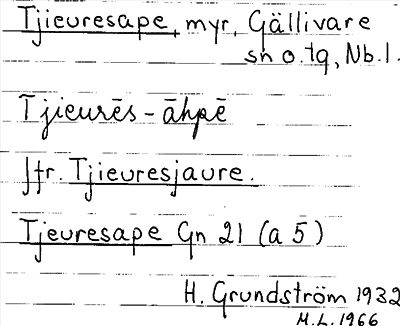 Tjieuresape, myr, Gällivare
sn o. tg, Nb.l.
Tjieurēs-āhpē
Jfr. Tjieuresjaure.
Tjeuresape Gn 21 (a 5)
H. Grundström 1932
M.L. 1966